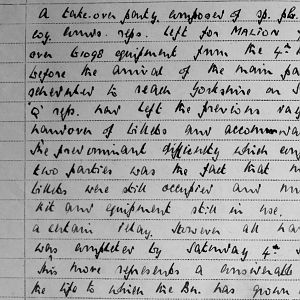 A take-over party, composed of sp. pl.
coy. comds. reps. left for MALTON
over G1098 equipment from the 4th
before the arrival of the main pa
scheduled to reach Yorkshire on S
Q reps. had left the previous
handover of billets and accommo
The predominant difficulty which
two parties was the fact that
billets were still occupied and
kit and equipment still in use.
a certain delay. However all ha
was completed by Saturday 4th
This move represents a
the life to which the Bn. has grown